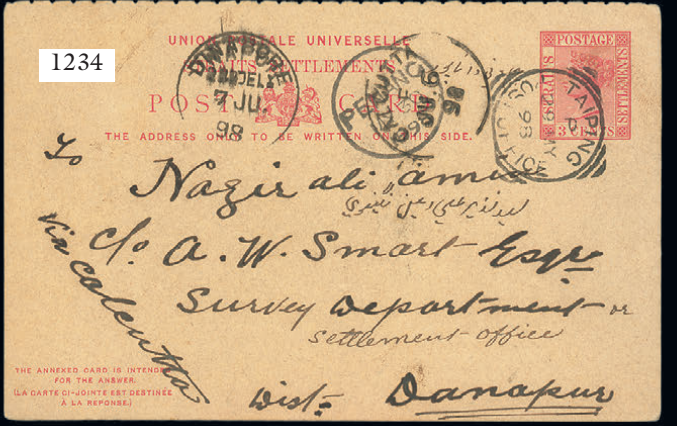 1234
UNION POSTALE UNIVERSELLE
STRAITS SETTLEMENTS
POST CARD
THE ADDRESS ONLY TO BE WRITTEN ON THIS SIDE.
POSTAGE
STRAITS
SETTLEMENTS
3 CENTS
DINAPORE
DEL.
7 JU
98
TAIPING
98
To
Nazir ali amin
c/o A. W. Smart Esqr
Survey Department or
settlement office
Dist. Danapur
Via Calcutta
THE ANNEXED CARD IS INTENDED
FOR THE ANSWER.
(LA CARTE CI-JOINTE EST DESTINÉE
À LA RÉPONSE.)